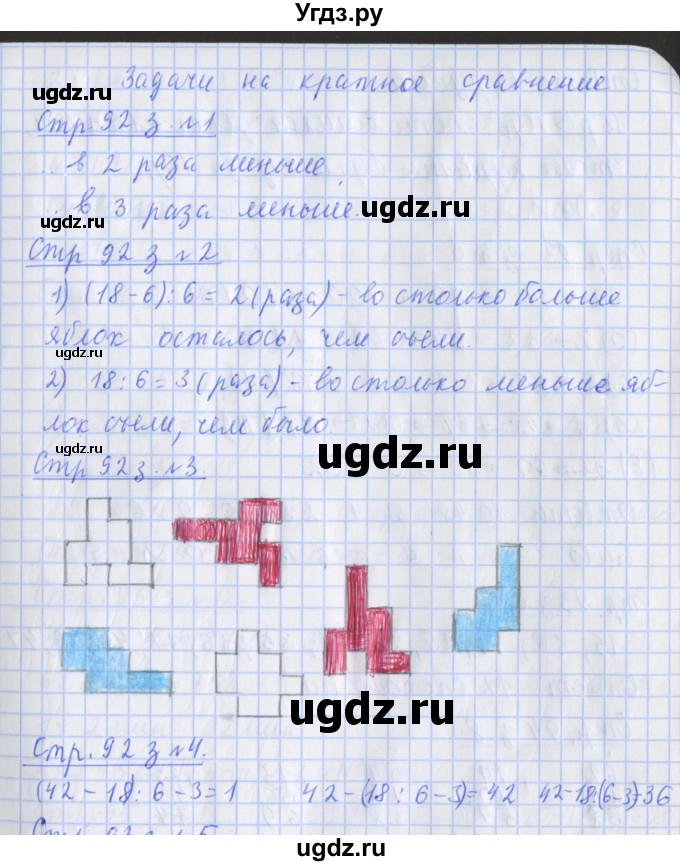 Угдз.ру
Задачи на кратное сравнение
ugdz.ru
Стр 92 з. №1
...в 2 раза меньше.
...в 3 раза меньше.
ugdz.ru
Стр 92 з №2
1) (18-6):6=2(раза) - во столько больше
яблок осталось, чем съели.
ugdz.ru
2) 18:6=3(раза) - во столько меньше яб-
лок съели, чем было
ugdz.ru
ugdz.ru
Стр 92 з. №3.
ugdz.ru
Стр. 92 з №4.
(42-18):6-3=1 42-(18:6-3)=42 42-18:(6-3)=36
ugdz.ru